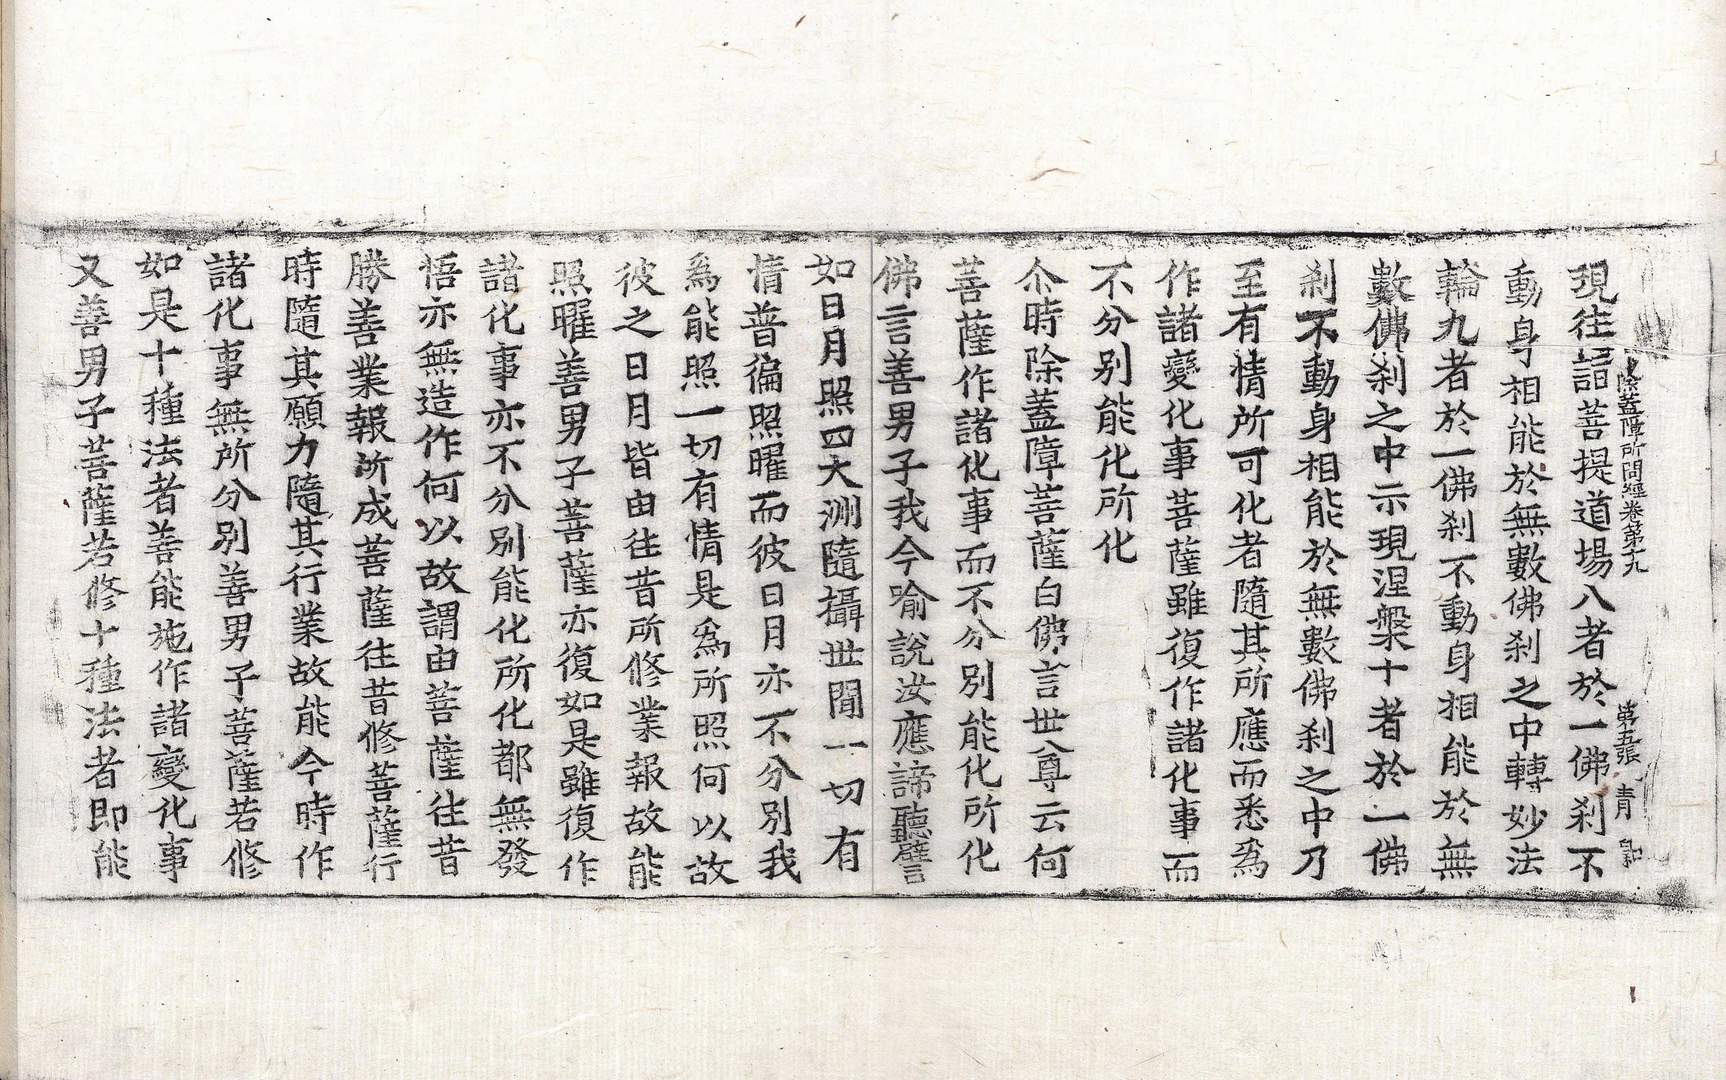 除蓋障所問經卷第十九 第五張 青
現往詣菩提道場八者於一佛刹不
動身相能於無數佛刹之中轉妙法
輪九者於一佛刹不動身相能於無
數佛刹之中示現涅槃十者於一佛
刹不動身相能於無數佛刹之中乃
至有情所可化者隨其所應而悉爲
作諸變化事菩薩雖復作諸化事而
不分别能化所化
尒時除蓋障菩薩白佛言世尊云何
菩薩作諸化事而不分别能化所化
佛言善男子我今喻說汝應諦聽譬言
如日月照四大洲隨攝世間一切有
情普徧照曜而彼日月亦不分别我
爲能照一切有情是爲所照何以故
彼之日月皆由往昔所修業報故能
照曜善男子菩薩亦復如是雖復作
諸化事亦不分别能化所化都無發
悟亦無造作何以故謂由菩薩往昔
勝善業報所成菩薩往昔修菩薩行
時隨其願力隨其行業故能今時作
諸化事無所分别善男子菩薩若修
如是十種法者善能施作諸變化事
又善男子菩薩若修十種法者即能